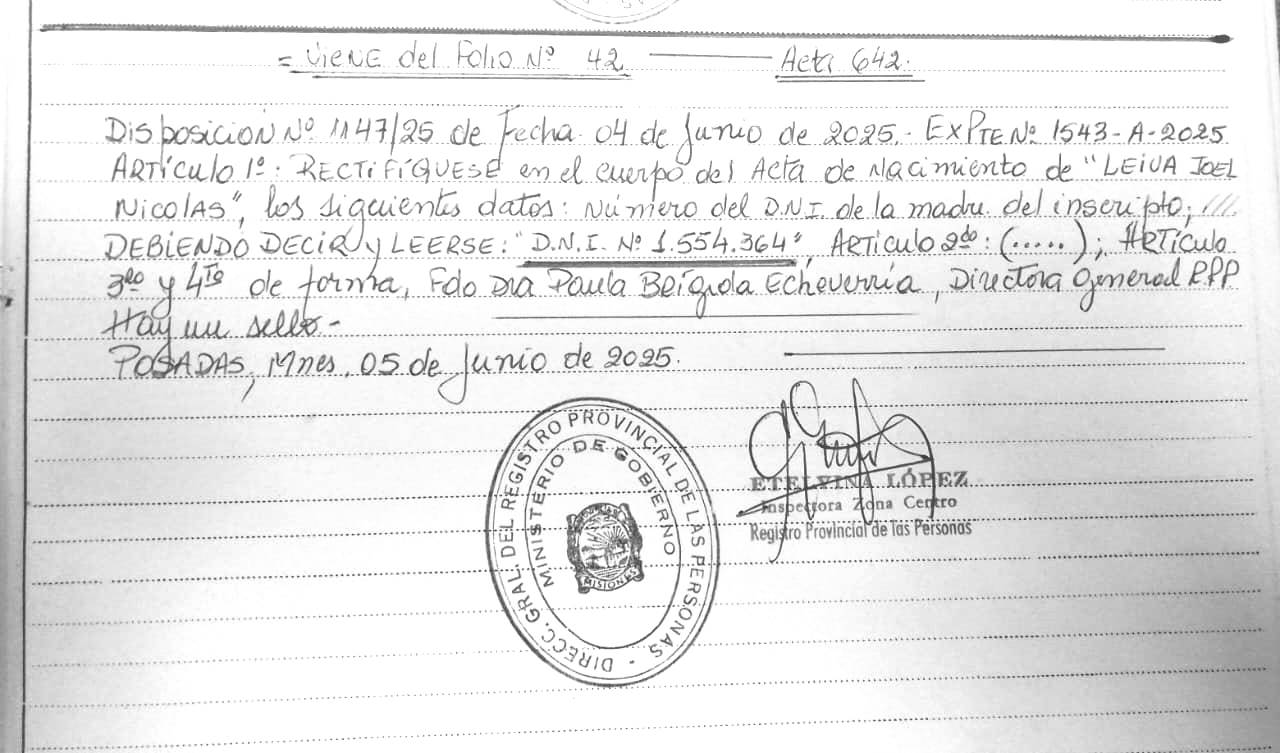 = Viene del Folio Nº 42 ——— Acta 642.
Disposicion Nº 1147/25 de Fecha 04 de Junio de 2025.- EXPTE Nº 1543-A-2025
ARTÍculo 1º: RECTIFÍQUESE en el cuerpo del Acta de Nacimiento de "LEIVA JOEL
Nicolas", los siguientes datos: Número del D.N.I. de la madre del inscripto; ///
DEBIENDO DECIR y LEERSE: "D.N.I. Nº 1.554.364", ARTICULO 2do: (.....); ARTÍCULO
3ro y 4to de forma, Fdo Dra Paula Brígida Echeverría, Directora General RPP
Hay un sello.-
POSADAS, Mnes, 05 de Junio de 2025.
DIRECC. GRAL. DEL REGISTRO PROVINCIAL DE LAS PERSONAS -
MINISTERIO DE GOBIERNO
MISIONES
ETELVINA LÓPEZ
Inspectora Zona Centro
Registro Provincial de las Personas